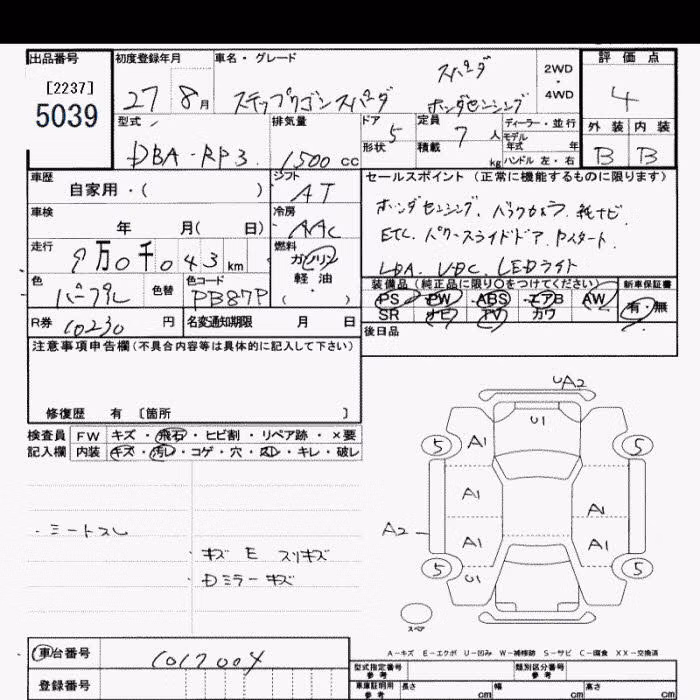 出品番号 初度登録年月 車名・グレード 評価点
[2237]
5039
27 8月 ステップワゴンスパーダ スパーダ ホンダセンシング 2WD・4WD 4
型式 排気量 ドア 定員 ディーラー・並行 外装 内装
DBA-RP3 1500cc 5 7人 モデル年式 年 B B
形状 積載 kg ハンドル 左・右
車歴 シフト セールスポイント (正常に機能するものに限ります)
自家用・( ) AT
ホンダセンシング、バックカメラ、純ナビ
車検 冷房
年 月( 日) AAC
ETC、パワースライドドア、Pスタート、
走行 燃料
9万0千043km ガソリン
LDA、VDC、LEDライト
色 色替 色コード 軽油
パープル PB87P ( )
装備品(純正品に限り○をつけてください) 新車保証書
PS PW ABS エアB AW 有・無
SR ナビ TV カワ
R券 10230円 名変通知期限 月 日
後日品
注意事項申告欄(不具合内容等は具体的に記入して下さい)
修復歴 有 [箇所 ]
検査員 FW キズ・飛石・ヒビ割・リペア跡・×要
記入欄 内装 キズ・汚レ・コゲ・穴・・キレ・破レ
UA2
U1
5 A1 5
A1 A1
A2 A1 A1
5 U1 5
スペア
・ミートスレ
・キズ E スリキズ
・Dミラーキズ
A-キズ E-エクボ U-凹み W-補修跡 S-サビ C-腐食 XX-交換済
車台番号 1017004
型式指定番号 参考 類別区分番号 参考
登録番号
車庫証明用 参考 長さ cm 幅 cm 高さ cm